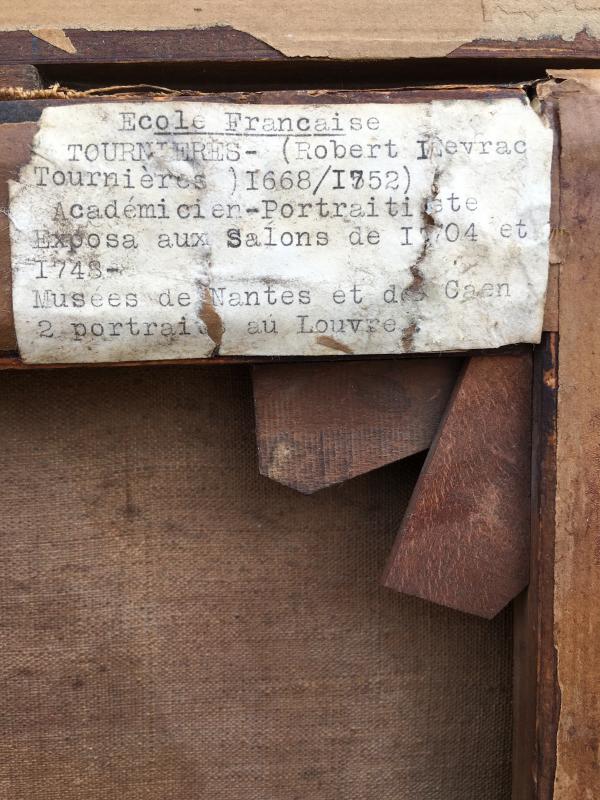 Ecole Francaise
TOURNIERES- (Robert Levrac
Tournières )I668/I752)
Académicien-Portraitiste
Exposa aux Salons de I704 et
I748-
Musées de Nantes et de Caen
2 portraits au Louvre.